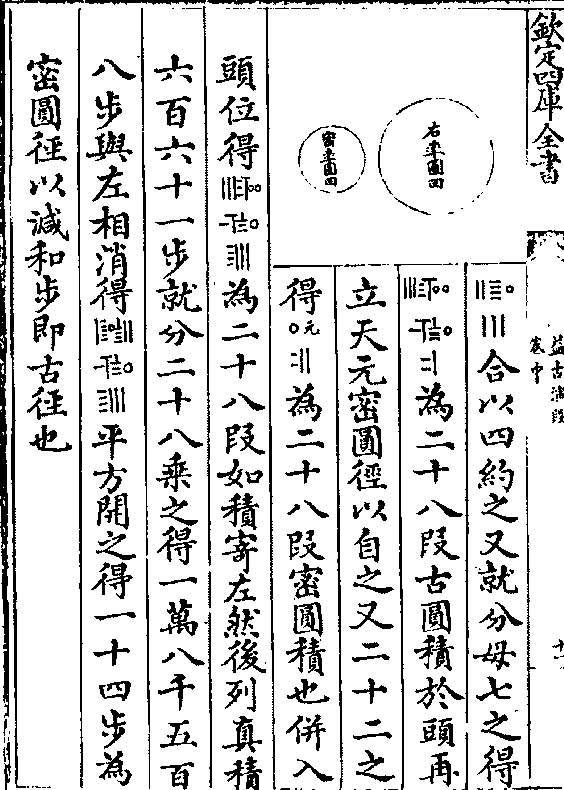 欽定四庫全書
益古演段
卷中
十一
合以四約之又就分母七之得
為二十八段古圓積於頭再
立天元密圓徑以自之又二十二之
得〇元為二十八段密圓積也併入
右率圓四
密率圓四
頭位得為二十八段如積寄左然後列真積
六百六十一步就分二十八乘之得一萬八千五百
八步與左相消得平方開之得一十四步為
密圓徑以減和步即古徑也